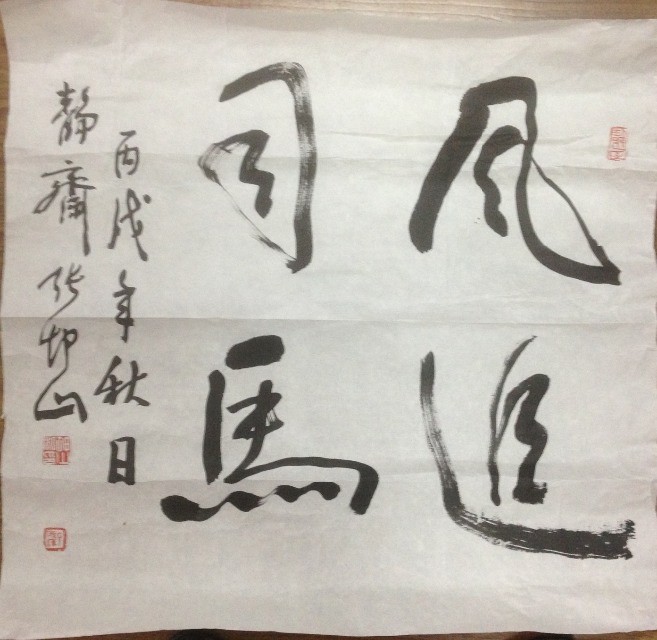 風追
司馬
丙戌年秋日
静齋张山